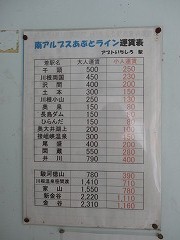 南アルプスあぷとライン運賃表
アプトいちしろ 駅
着駅名 大人運賃 小人運賃
千頭 500 250
川根両国 460 230
沢間 400 200
土本 300 150
川根小山 250 130
奥泉 150 80
長島ダム 150 80
ひらんだ 150 80
奥大井湖上 200 100
接岨峡温泉 300 150
尾盛 400 200
閑蔵 560 280
井川 790 400
駿河徳山 780 390
川根温泉笹間渡 1,410 710
家山 1,550 780
新金谷 2,220 1,110
金谷 2,310 1,160